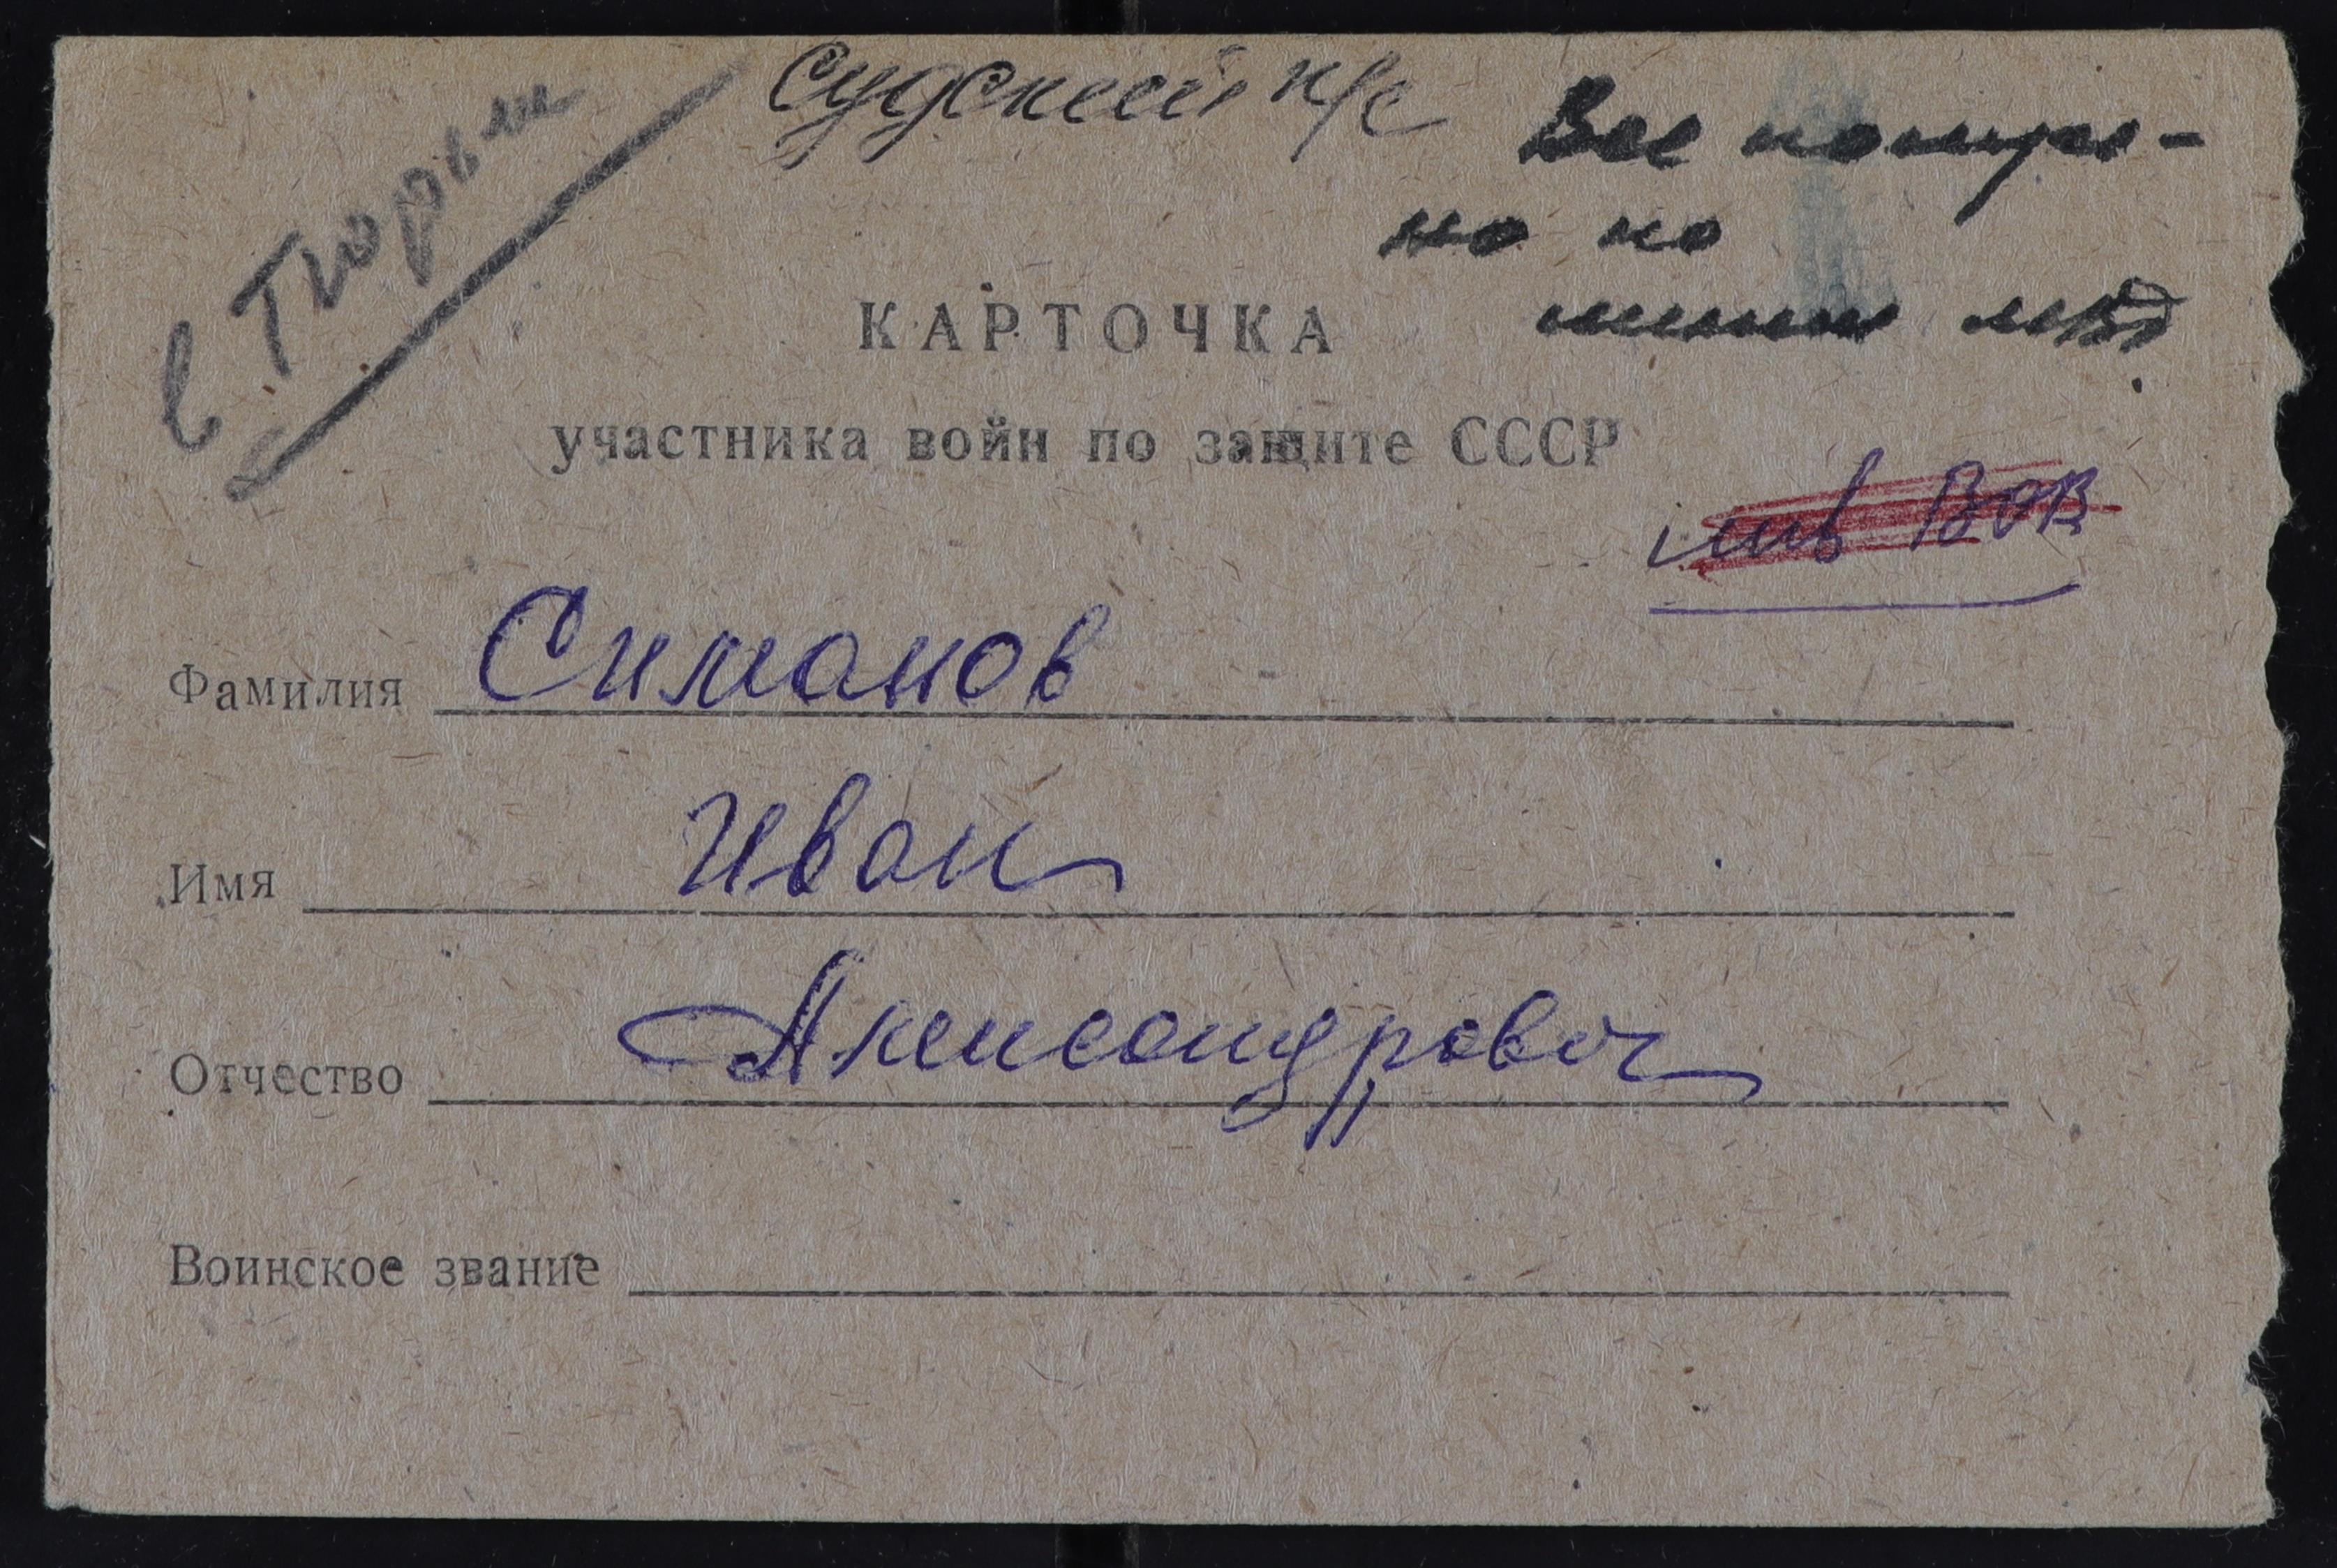 с. Тюрьли
Судский с/с
Все
но по
линии мвд
КАРТОЧКА
участника войн по защите СССР
инв ВОВ
Фамилия Симанов
Имя Иван
Отчество Александрович
Воинское звание